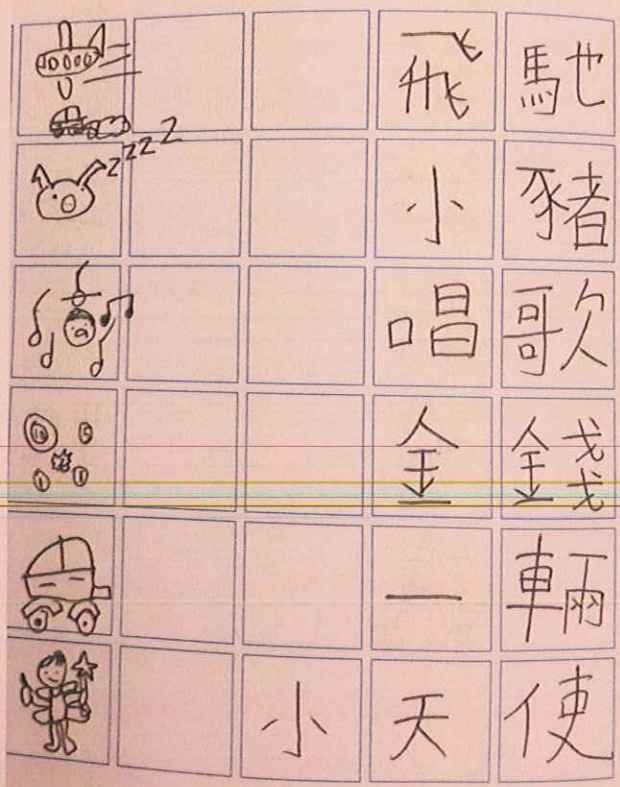 飛馳
zzzz 小豬
唱歌
金錢
一輛
小天使